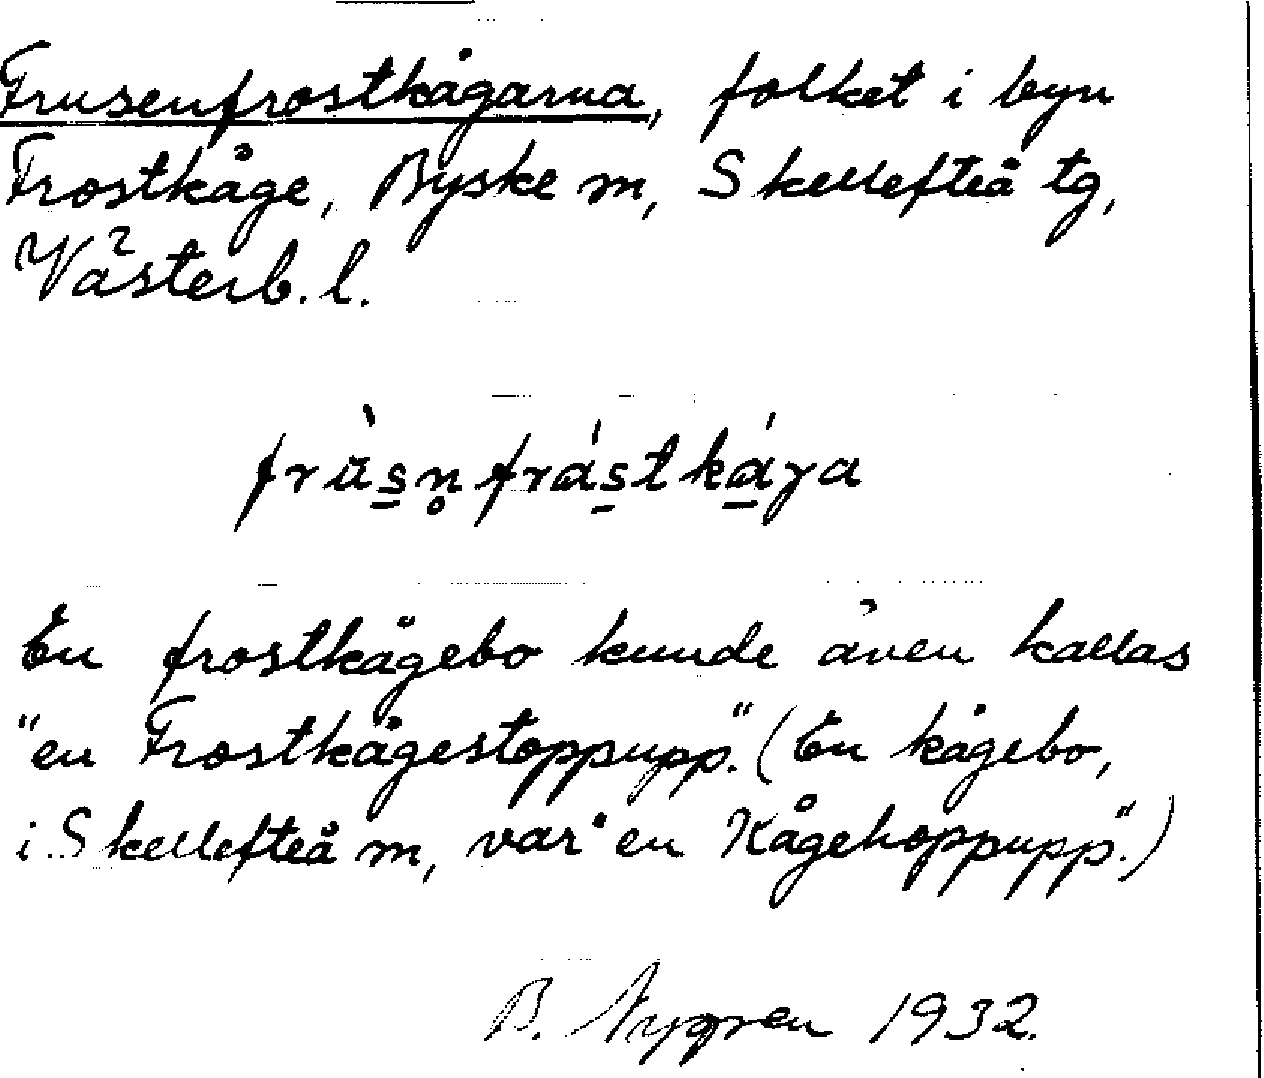 Frusenfrostkågarna, folket i byn
Frostkåge, Byske sn, Skellefteå tg,
Västerb. l.
frùsn̥frástkáγa
En frostkågebo kunde även kallas
"en Frostkågestoppupp". (En kågebo,
i Skellefteå sn, var "en Kågehoppupp".)
B. Nygren 1932.